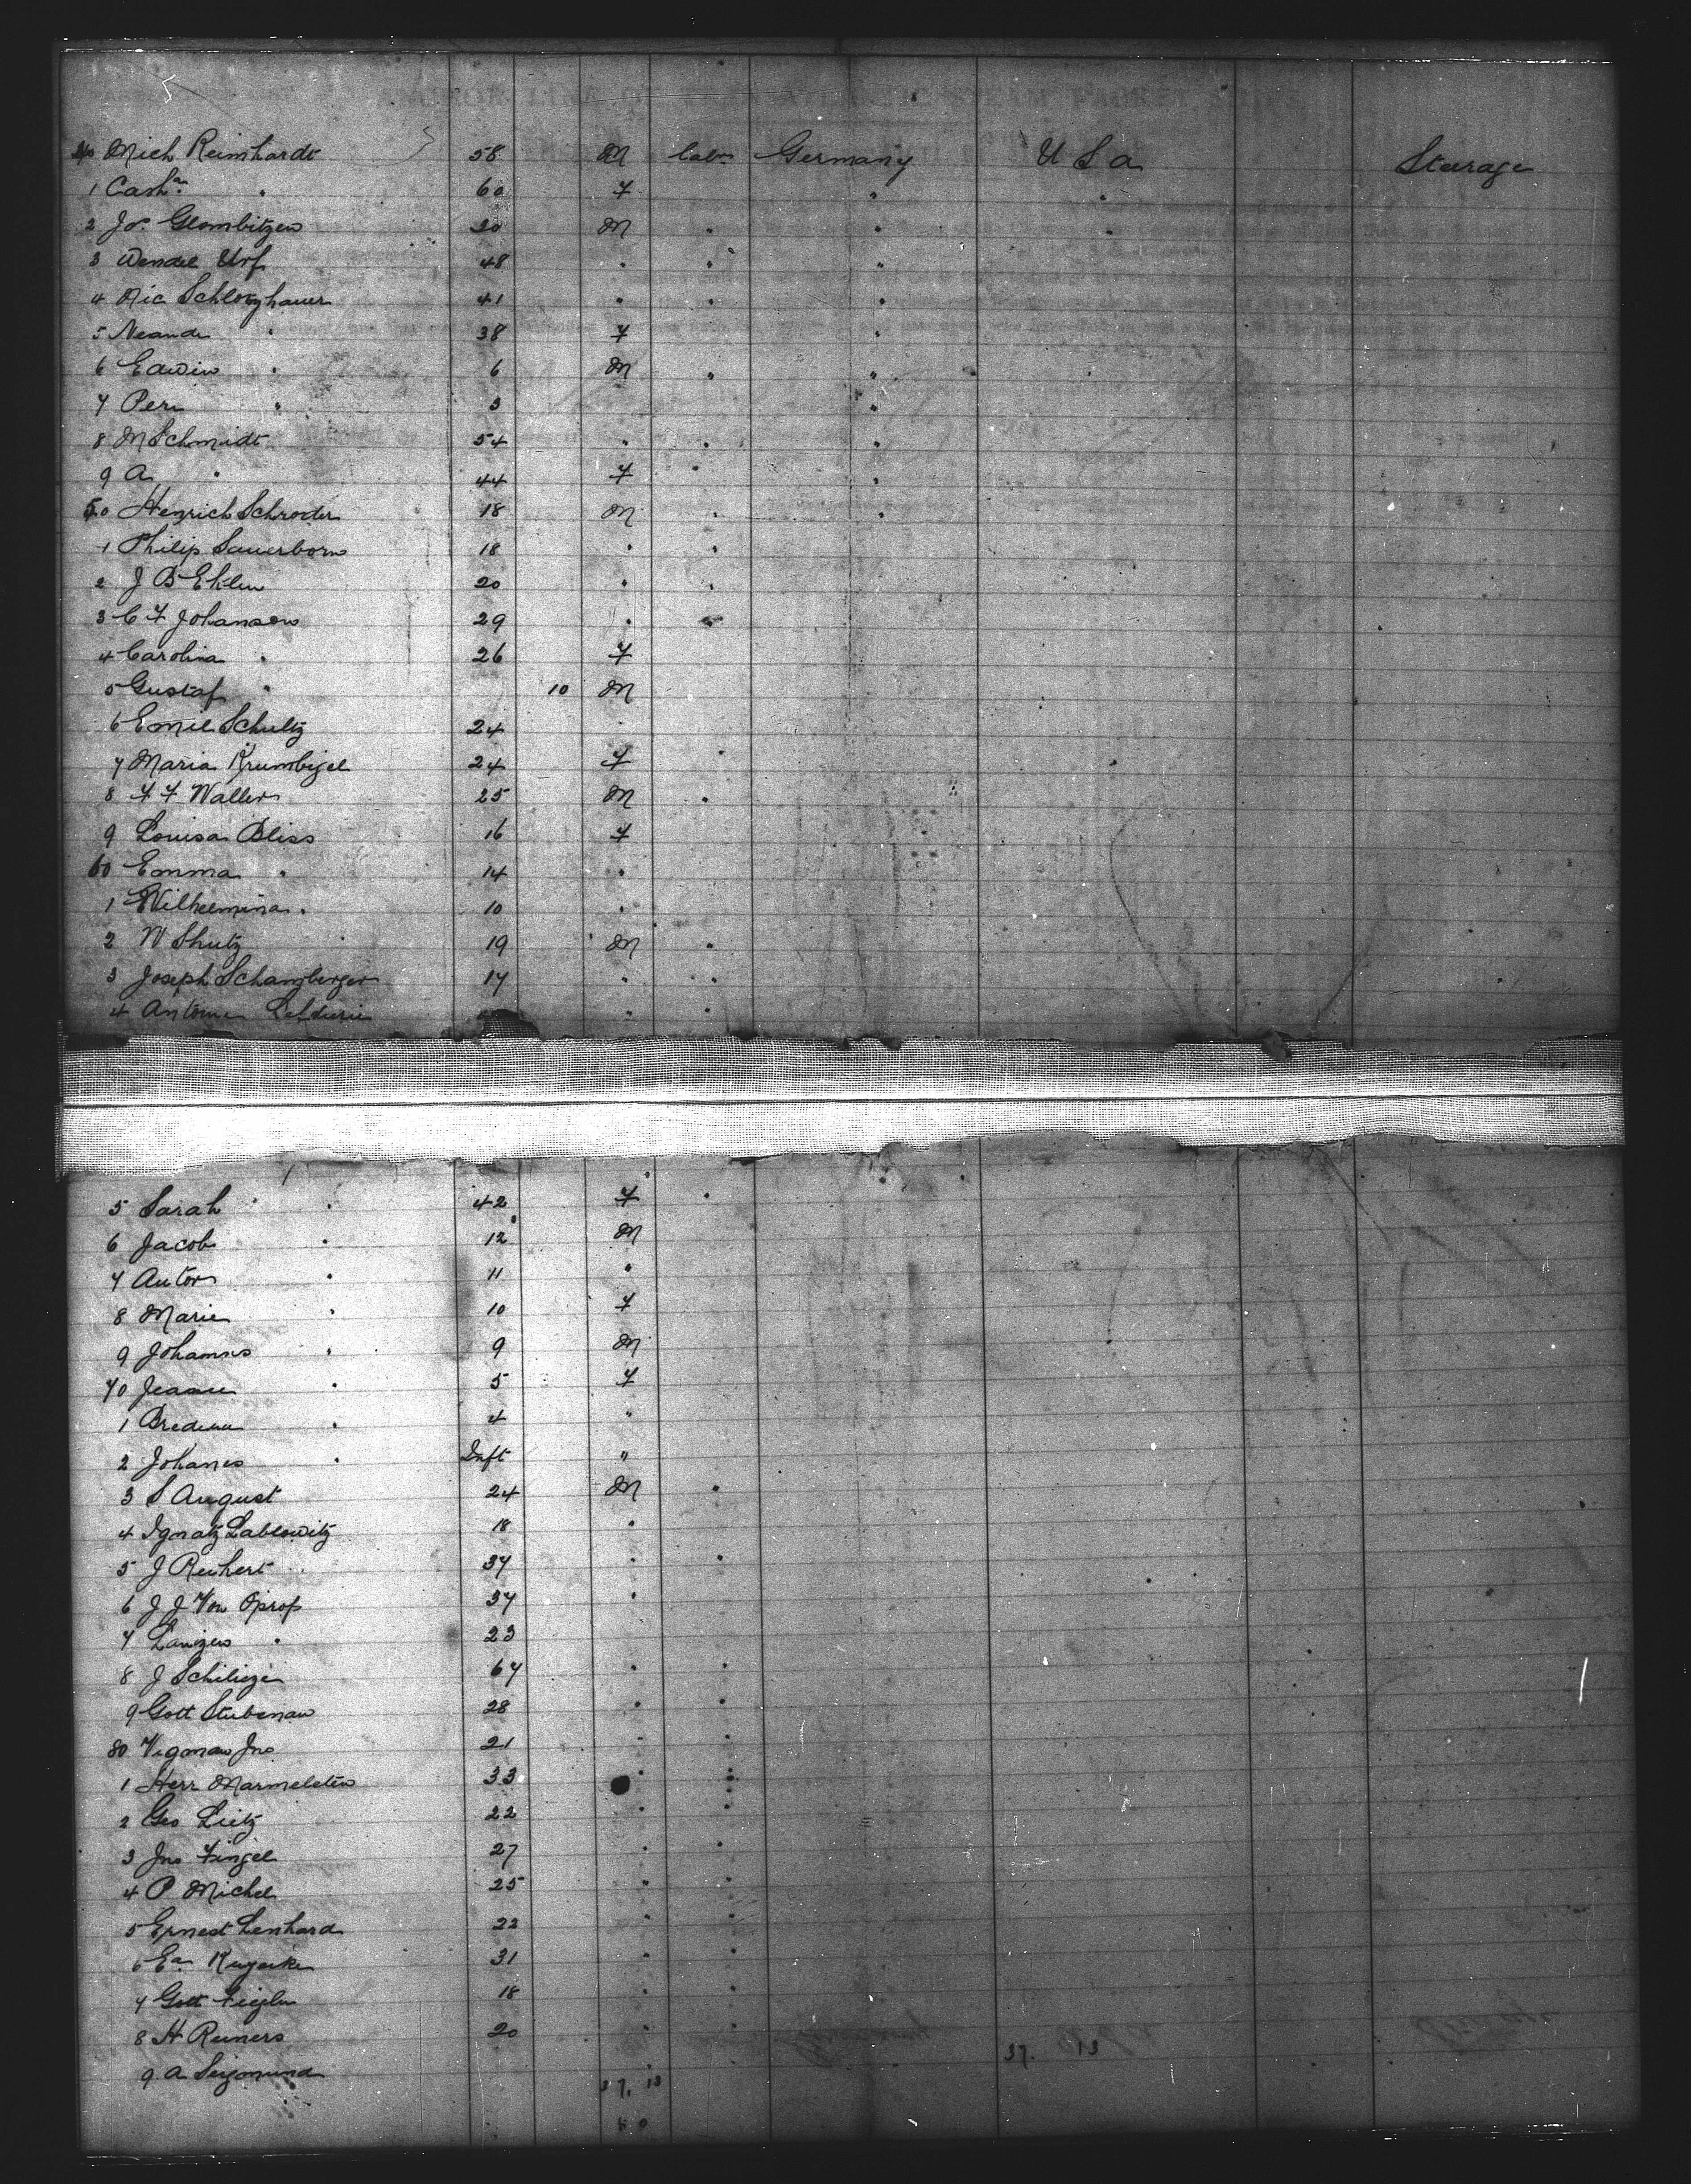 40 Mich Reinhardt 58 M labr Germany U S a Steerage
1 Cath.a " 60 F "  "
2 Jos. Glombitzen 20 M " " "
3 Wendel Urf 48 " " "
4 Nic 41 " " "
5 " 38 F "
6 Edwin " 6 M " "
7 Peri " 3 "
8 M Schmidt 54 " " "
9 A " 44 F " "
50 Henrich Schroder 18 M " "
1 Philip Sauerborn 18 " "
2 J B Ehlen 20 " "
3 C F Johanson 29 " "
4 Carolina " 26 F
5 Gustaf " 10 M
6 Emil Schultz 24 "
7 Maria Krumbigel 24 F "
8 F F Waller 25 M "
9 Louisa Bliss 16 F
60 Emma " 14 "
1 Wilhelmina " 10 "
2 W Shutz 19 M "
3 Joseph Schamberger 17 " "
4 Antoine " "
5 Sarah " 42 F "
6 Jacob " 12 M
7 Anton " 11 "
8 Marie " 10 F
9 Johannes " 9 M
70 Jeanne " 5 F
1 " 4 "
2 Johanes " Inft "
3 S August 24 M "
4 Ignatz Lablowitz 18 "
5 J Reihert 37 " "
6 J J Von 37 "
7 " 23
8 J 67 " "
9 Gott Stubenau 28 " "
80 Jno 21 " "
1 Herr Marmeletin 33 " "
2 Geo Lietz 22 " "
3 Jno Fingel 27 " "
4 P Michel 25 " "
5 Ernest Lenhard 22 " "
6 31 " "
7 Gott 18 " "
8 H Reiners 20 " "
37. 13
9 A Seigmund
37, 13